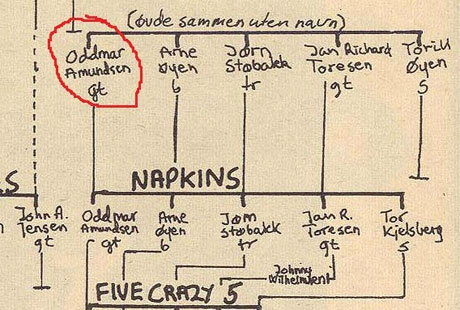 (øvde sammen uten navn)
Oddmar Amundsen gt
Arne Øyen b
Jørn Støbakk tr
Jan Richard Toresen gt
Torill Øyen s
NAPKINS
S
John A. Jensen gt
Oddmar Amundsen gt
Arne Øyen b
Jørn Støbakk tr
Jan R. Toresen gt
Tor Kjelsberg s
Johnny
FIVE CRAZY 5